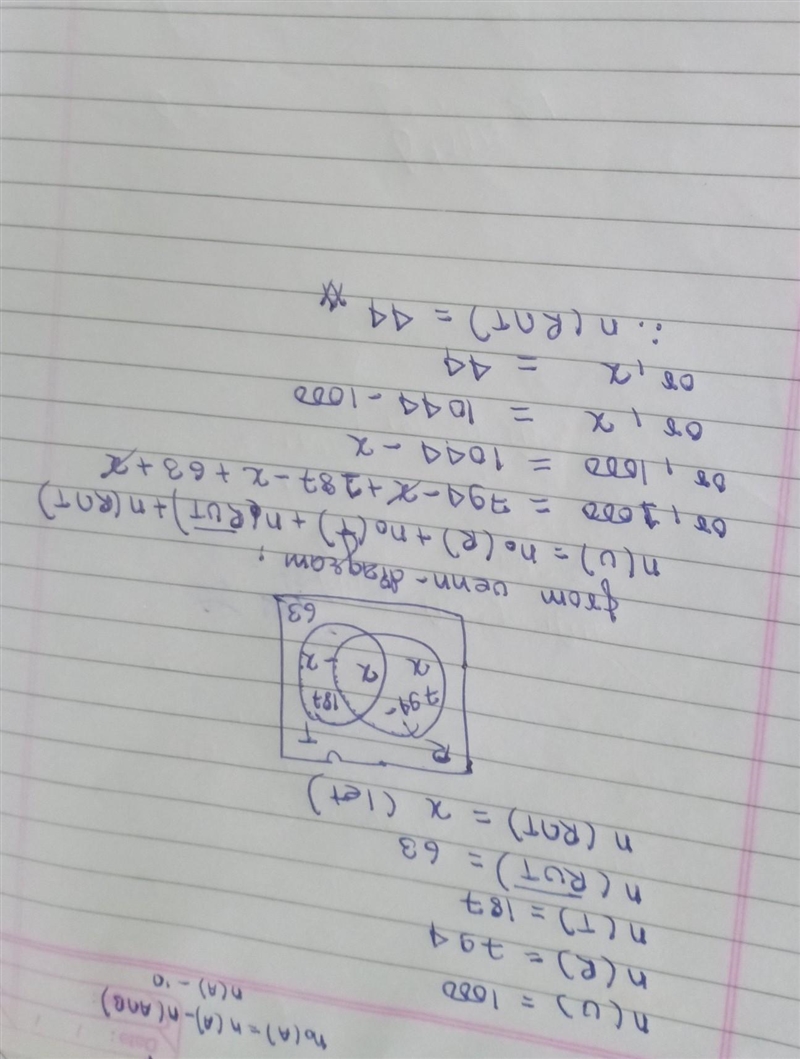 n₀(A) = n(A) - n(A∩B)
n(A) - 10
n(U) = 1000
n(R) = 794
n(T) = 187
n(\overline{R∪T}) = 63
n(R∩T) = x (let)
U
R T
794- x
x
187 - x
63
from venn-diagram,
n(U) = n₀(R) + n₀(T) + n(\overline{R∪T}) + n(R∩T)
or, 1000 = 794 - x + 187 - x + 63 + x
or, 1000 = 1044 - x
or, x = 1044 - 1000
or, x = 44
∴ n(R∩T) = 44